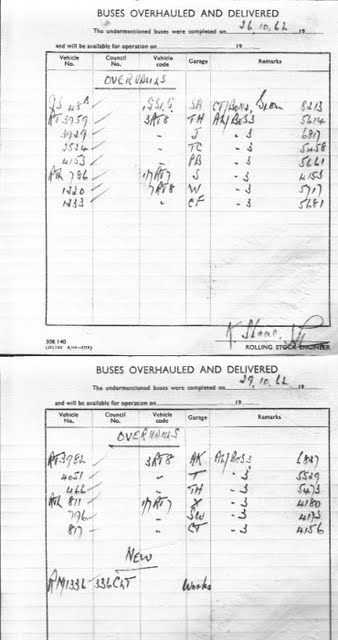 BUSES OVERHAULED AND DELIVERED
The undermentioned buses were completed on 26.10.62 19
and will be available for operation on 19
Vehicle No. Council No. Vehicle code Garage Remarks
OVERHAULS
GS 48 SA 8213
RT 3959 3RT8 TH AL/BOSS 5614
3929 " J " - 3 6817
2534 " TC - 3 5458
4153 " PB - 3 5661
RTL 786 1/7RT7 S - 3 4153
1220 7RT8 W - 3 5717
1233 " CF - 3 5681
308 140
ROLLING STOCK ENGINEER
BUSES OVERHAULED AND DELIVERED
The undermentioned buses were completed on 29.10.62 19
and will be available for operation on 19
Vehicle No. Council No. Vehicle code Garage Remarks
OVERHAULS
RT 3982 3RT8 AK AL/BOSS 6827
4051 " T - 3 5529
466 " TH - 3 5473
RTL 811 1/7RT7 X - 3 4180
796 " SW - 3 4173
817 " CT - 3 4156
NEW
RM1336 336CLT Works